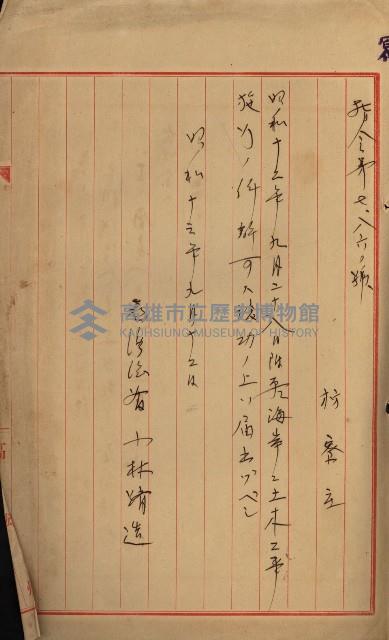 指令第七八六〇號
枋寮庄
昭和十三年九月二十八日附 海岸ニ土木工事
施行ノ件 許可ス 竣功ノ上ハ届出ヅベシ
昭和十三年九月十二日
臺灣總督 小林躋造
高雄市立歷史博物館
KAOHSIUNG MUSEUM OF HISTORY